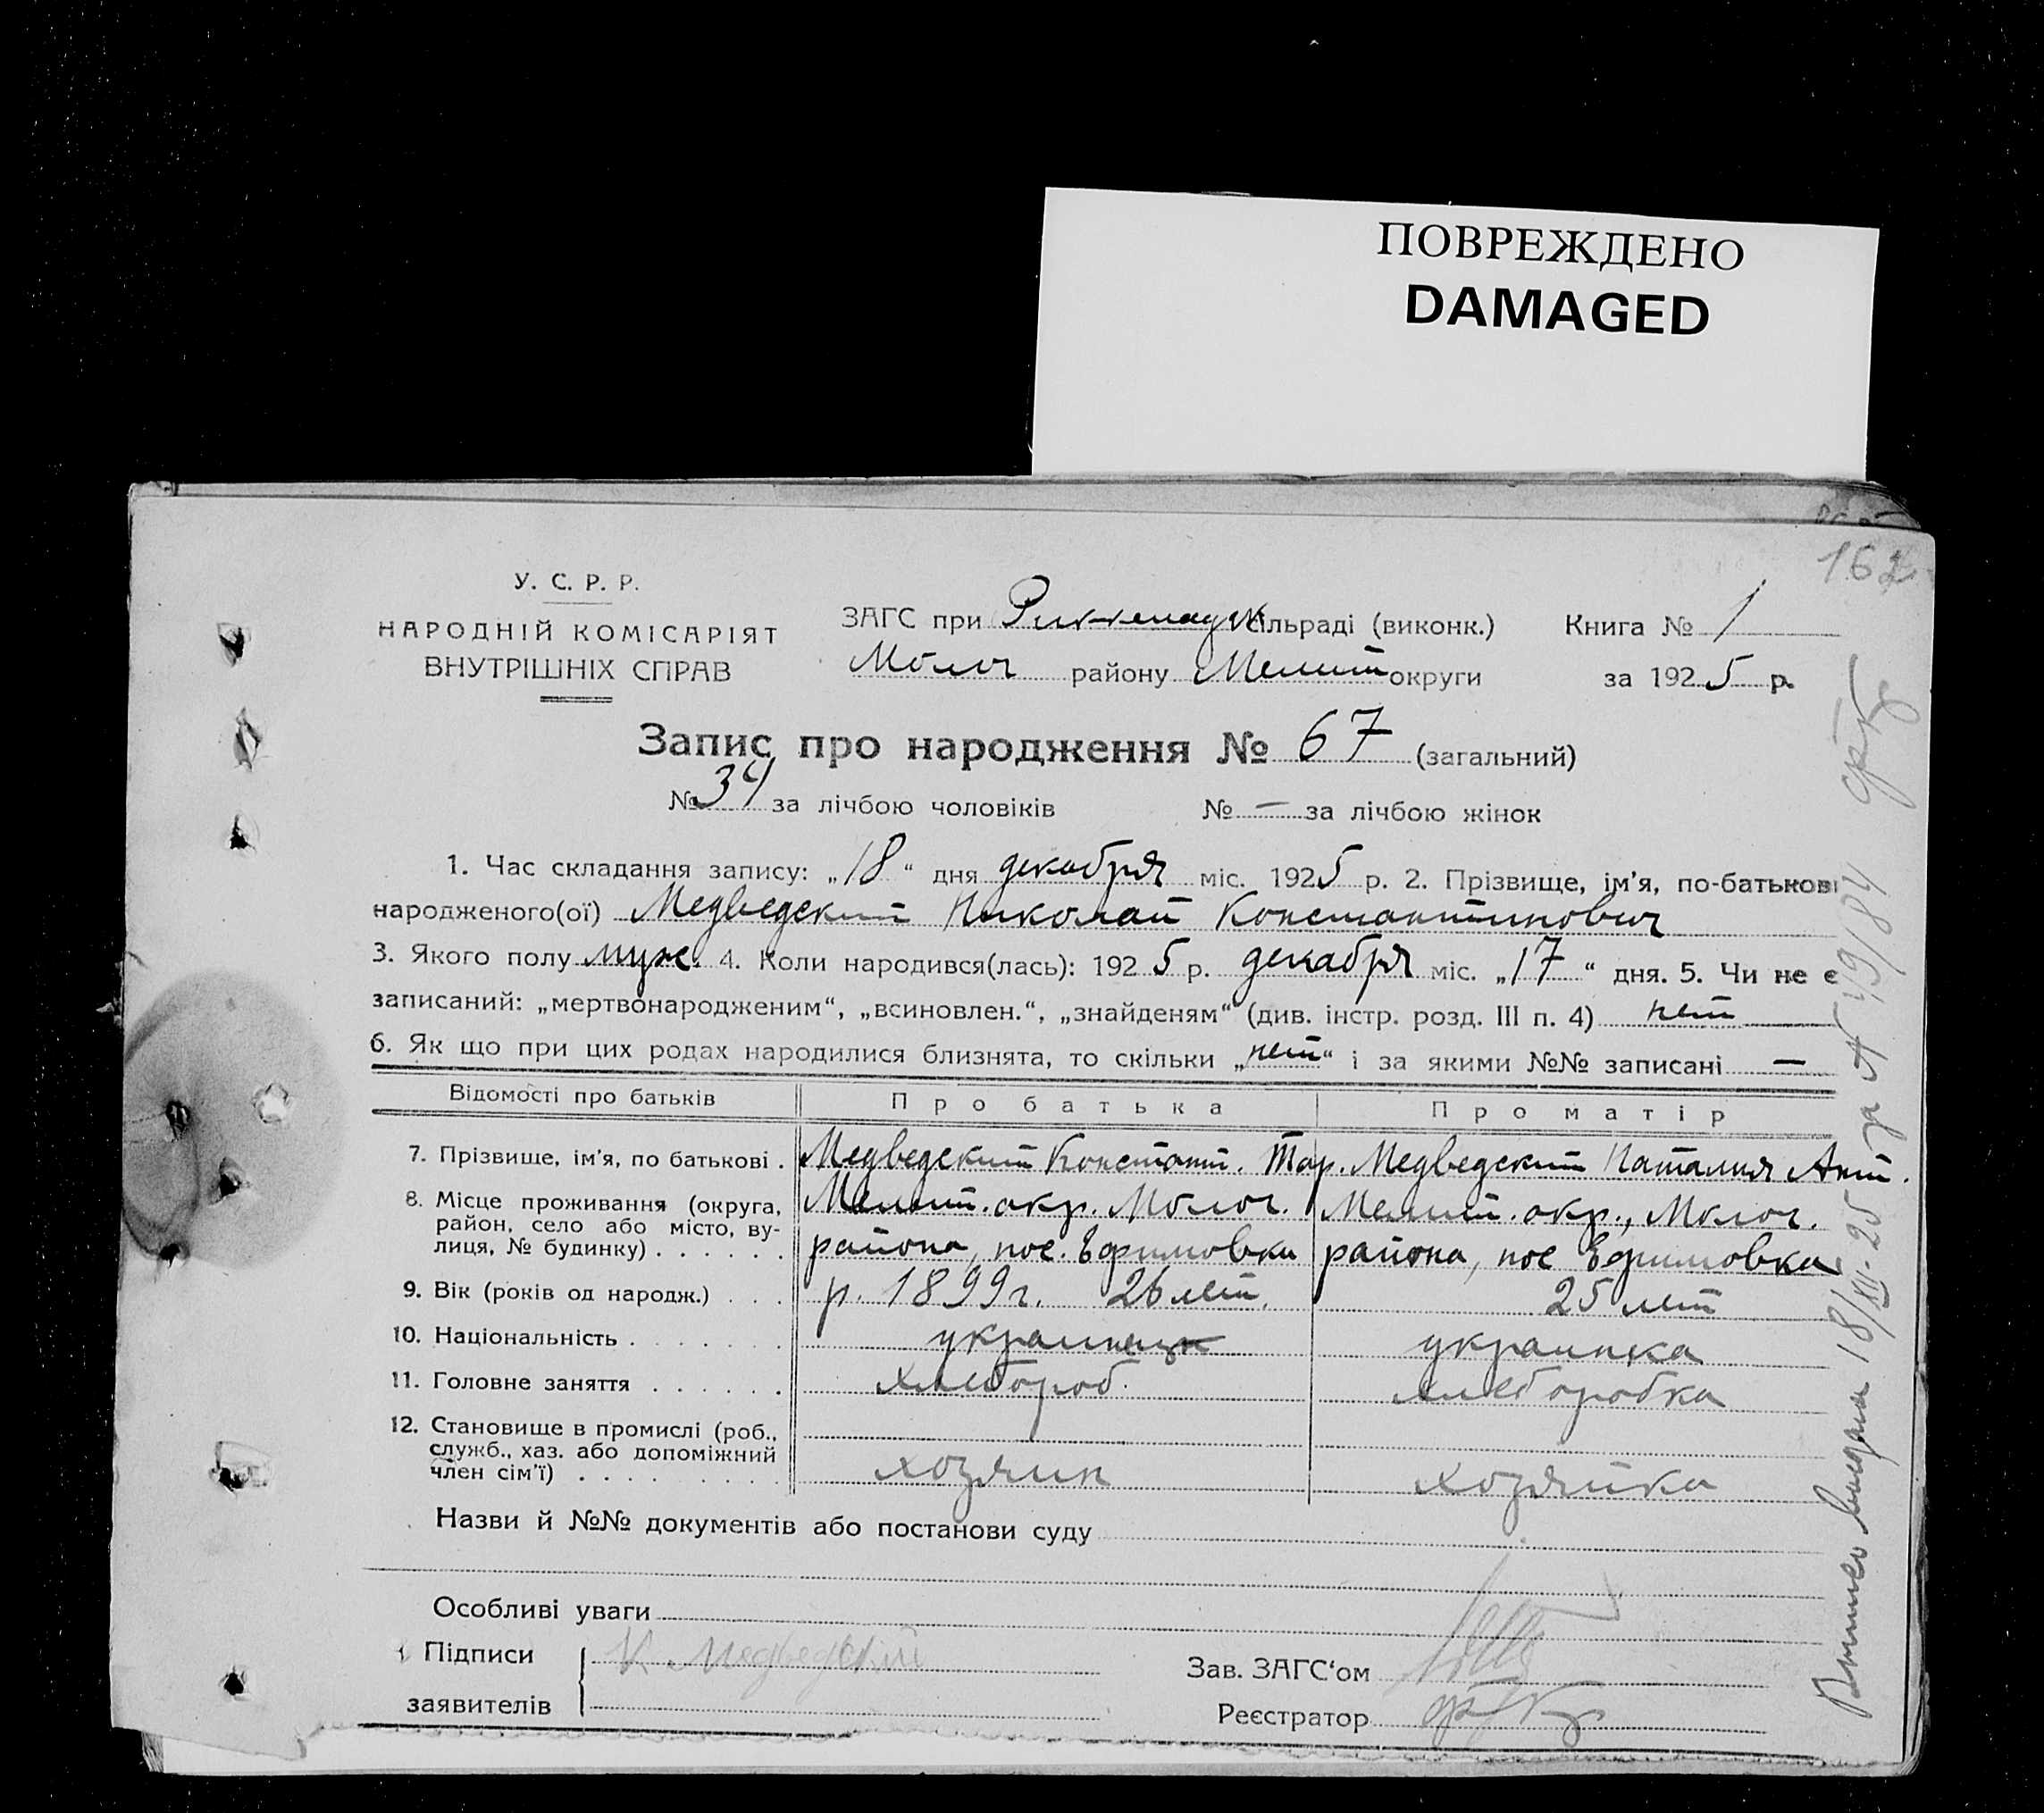 ПОВРЕЖДЕНО
DAMAGED
162
У. С. Р. Р.
НАРОДНІЙ КОМІСАРІЯТ
ВНУТРІШНІХ СПРАВ
ЗАГС при сільраді (виконк.) Книга № 1
Молоч району Мелит округи за 1925 р.
Запис про народження № 67 (загальний)
№ 34 за лічбою чоловіків № — за лічбою жінок
1. Час складання запису: „18“ дня декабря міс. 1925 р. 2. Прізвище, ім’я, по-батькові
народженого(ої) Медведский Николай Константинович
3. Якого полу муж. 4. Коли народився(лась): 1925 р. декабря міс. „17“ дня. 5. Чи не є
записаний: „мертвонародженим“, „всиновлен.“, „знайденям“ (див. інстр. розд. III п. 4) нет
6. Як що при цих родах народилися близнята, то скільки „нет“ і за якими №№ записані —
Відомості про батьків Про батька Про матір
7. Прізвище, ім’я, по батькові . Медведский Констант. Тар. Медведский Наталия Ант.
8. Місце проживання (округа, Мелит. окр. Молоч. Мелит. окр., Молоч.
район, село або місто, ву-
лиця, № будинку) . . . . . . района, пос. Ефимовки района, пос Ефимовка
9. Вік (років од народж.) . . . р. 1899 г. 26 лет. 25 лет
10. Національність . . . . . . . украинец украинка
11. Головне заняття . . . . . . хлебороб. хлеборобка
12. Становище в промислі (роб.,
служб., хаз. або допоміжний
член сім’ї) . . . . . . . . . хозяин хозяйка
Назви й №№ документів або постанови суду
Особливі уваги
Підписи К. Медведский
заявителів
Зав. ЗАГС‘ом
Реєстратор
Выпись выдана 18/XII-25 за № 49/84